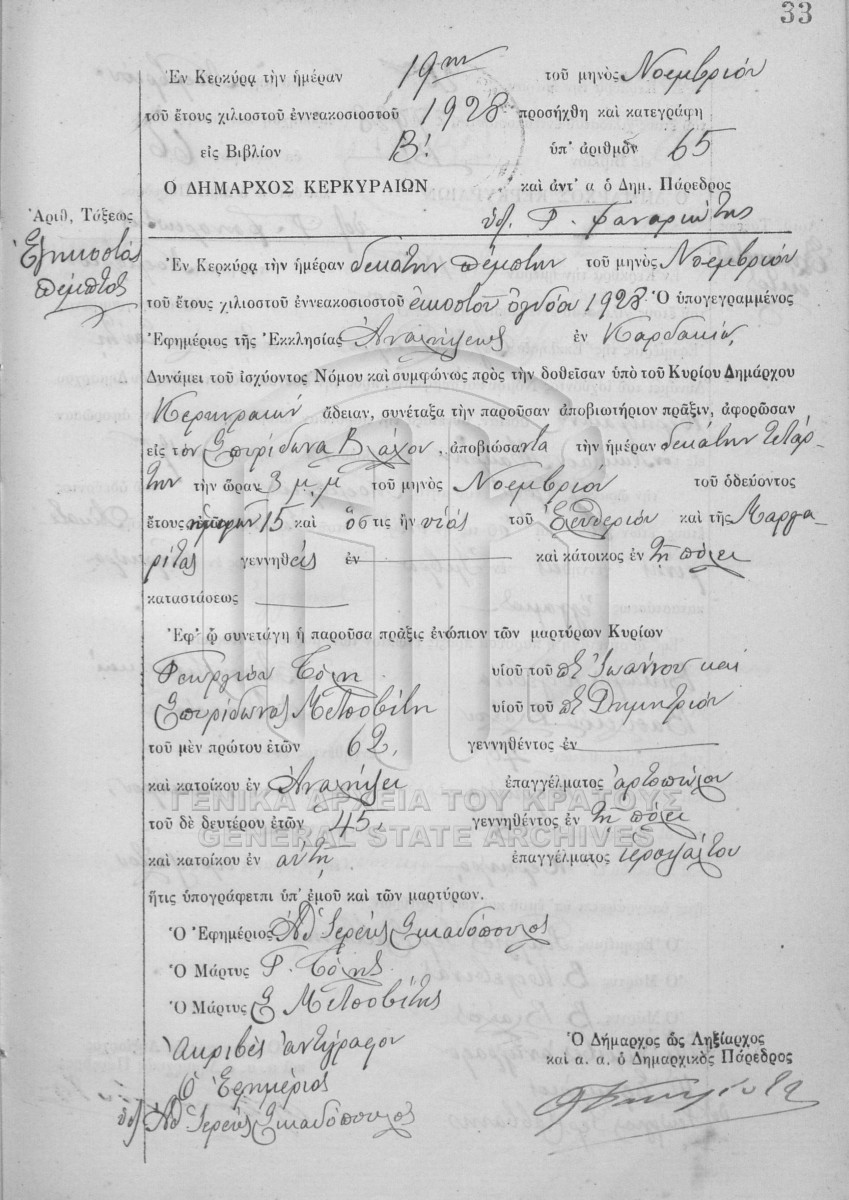 33
Ἐν Κερκύρᾳ τὴν ἡμέραν 19ην τοῦ μηνὸς Νοεμβρίου
τοῦ ἔτους χιλιοστοῦ ἐννεακοσιοστοῦ 1928 προσήχθη καὶ κατεγράφη
εἰς Βιβλίον Β! ὑπ' ἀριθμὸν 65
Ο ΔΗΜΑΡΧΟΣ ΚΕΡΚΥΡΑΙΩΝ καὶ ἀντ' α ὁ Δημ. Πάρεδρος
Γ. Φαναριώτης
Ἀριθ, Τάξεως
πέμπτος
Ἐν Κερκύρᾳ τὴν ἡμέραν δεκάτην πέμπτην τοῦ μηνὸς Νοεμβρίου
τοῦ ἔτους χιλιοστοῦ ἐννεακοσιοστοῦ εἰκοστοῦ ὀγδόου 1928 Ὁ ὑπογεγραμμένος
Ἐφημέριος τῆς Ἐκκλησίας Ἀναλήψεως ἐν Γαρδακίῳ
Δυνάμει τοῦ ἰσχύοντος Νόμου καὶ συμφώνως πρὸς τὴν δοθεῖσαν ὑπὸ τοῦ Κυρίου Δημάρχου
Κερκυραίων ἄδειαν, συνέταξα τὴν παροῦσαν ἀποβιωτήριον πρᾶξιν, ἀφορῶσαν
εἰς τὸν Σπυρίδωνα Βλάχον, ἀποβιώσαντα τὴν ἡμέραν δεκάτην τετάρ-
την τὴν ὥραν 3 μ.μ τοῦ μηνὸς Νοεμβρίου τοῦ ὁδεύοντος
ἔτους ἡμερῶν 15 καὶ ὅστις ἦν υἱὸς τοῦ Ἐλευθερίου καὶ τῆς Μαργα-
ρίτας γεννηθεὶς ἐν καὶ κάτοικος ἐν τῇ πόλει
καταστάσεως
Ἐφ' ᾧ συνετάγη ἡ παροῦσα πρᾶξις ἐνώπιον τῶν μαρτύρων Κυρίων
Γεωργίου υἱοῦ τοῦ πε Ἰωάννου καὶ
Σπυρίδωνος Μετσοβίτη υἱοῦ τοῦ πε Δημητρίου
τοῦ μὲν πρώτου ἐτῶν 62, γεννηθέντος ἐν
καὶ κατοίκου ἐν Ἀναλήψει ἐπαγγέλματος ἀρτοπώλου
ΓΕΝΙΚΑ ΑΡΧΕΙΑ ΤΟΥ ΚΡΑΤΟΥΣ
τοῦ δὲ δευτέρου ἐτῶν 45, γεννηθέντος ἐν τῇ πόλει
GENERAL STATE ARCHIVES
καὶ κατοίκου ἐν αὐτῇ ἐπαγγέλματος ἱεροψάλτου
ἥτις ὑπογράφετπι ὑπ' ἐμοῦ καὶ τῶν μαρτύρων.
Ὁ Ἐφημέριος Ἀθ Ἱερεὺς
Ὁ Μάρτυς Γ.
Ὁ Μάρτυς Σ Μετσοβίτης
Ἀκριβὲς ἀντίγραφον
Ὁ Ἐφημέριος
Ἀθ Ἱερεὺς
Ὁ Δήμαρχος ὡς Ληξίαρχος
καὶ α. α. ὁ Δημαρχικὸς Πάρεδρος